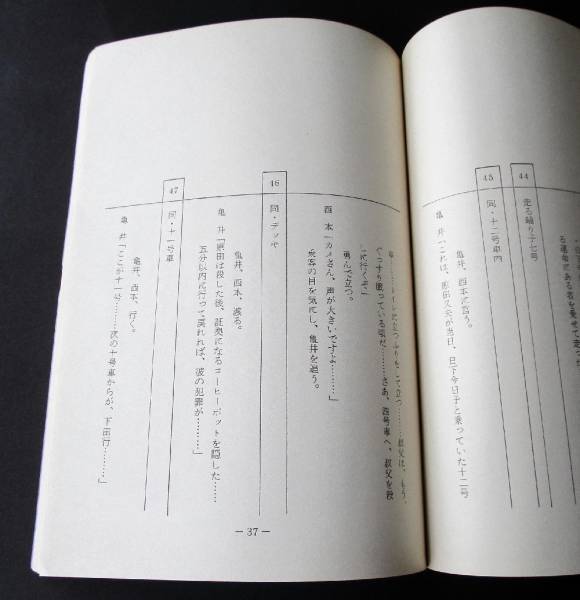 る運命にある夜を乗せて走った
44
走る踊り子七号
45
同・十二号車内
亀井、西本に言う。
亀　井「これは、原田又夫が当日、巳下今日子と乗っていた十二号
車……トイレに立つふりをして立つ……叔父は、もう、
ぐっすり眠っている頃だ……さあ、四号車へ、叔父を殺
しに行くぞ」
勇んで立つ。
西　本「カメさん、声が大きいですよ………」
乗客の目を気にし、亀井を追う。
46
同・デッキ
亀井、西本、渡る。
亀　井「原田は殺した後、証拠になるコーヒーポットを隠した……
五分以内に行って戻れれば、彼の犯罪が………」
47
同・十一号車
亀井、西本、行く。
亀　井「ここが十一号………次の十号車からが、下田行……」
— 37 —